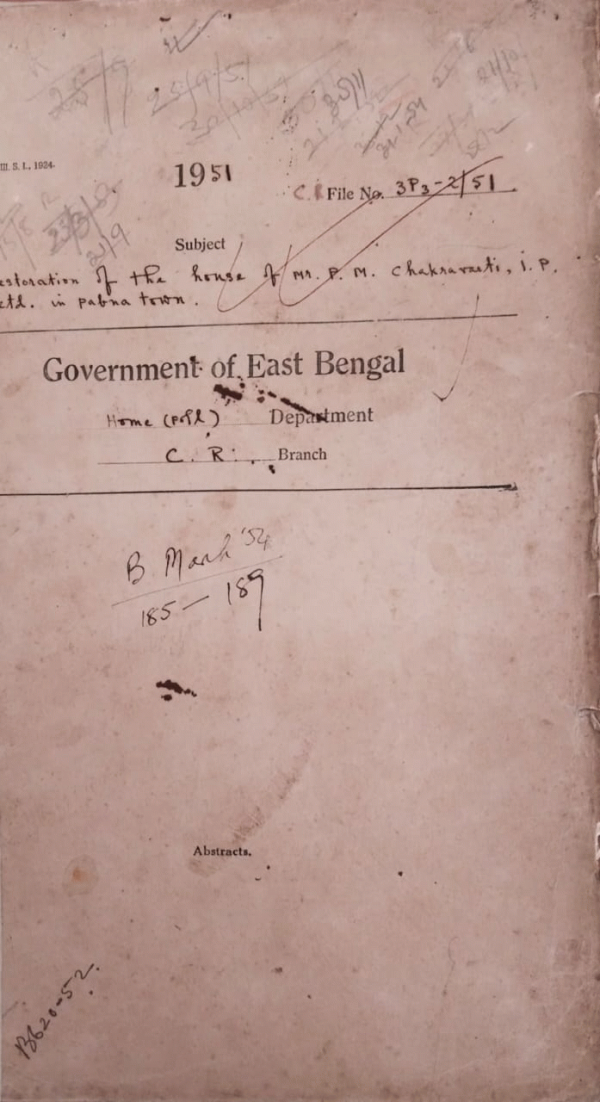 25/9
25/9/51
30/10/51
30/11
21/9
III. S. I., 1924.
1951
C.R. File No. 3P3-2/51.
23/3/53
Subject
estoration of the house of Mr. P. M. Chakravarti, I. P.
etd. in pabna town.
Government of East Bengal
Home (Poll) Department
C. R. Branch
B March '54
185 – 189
Abstracts.
B620-52.